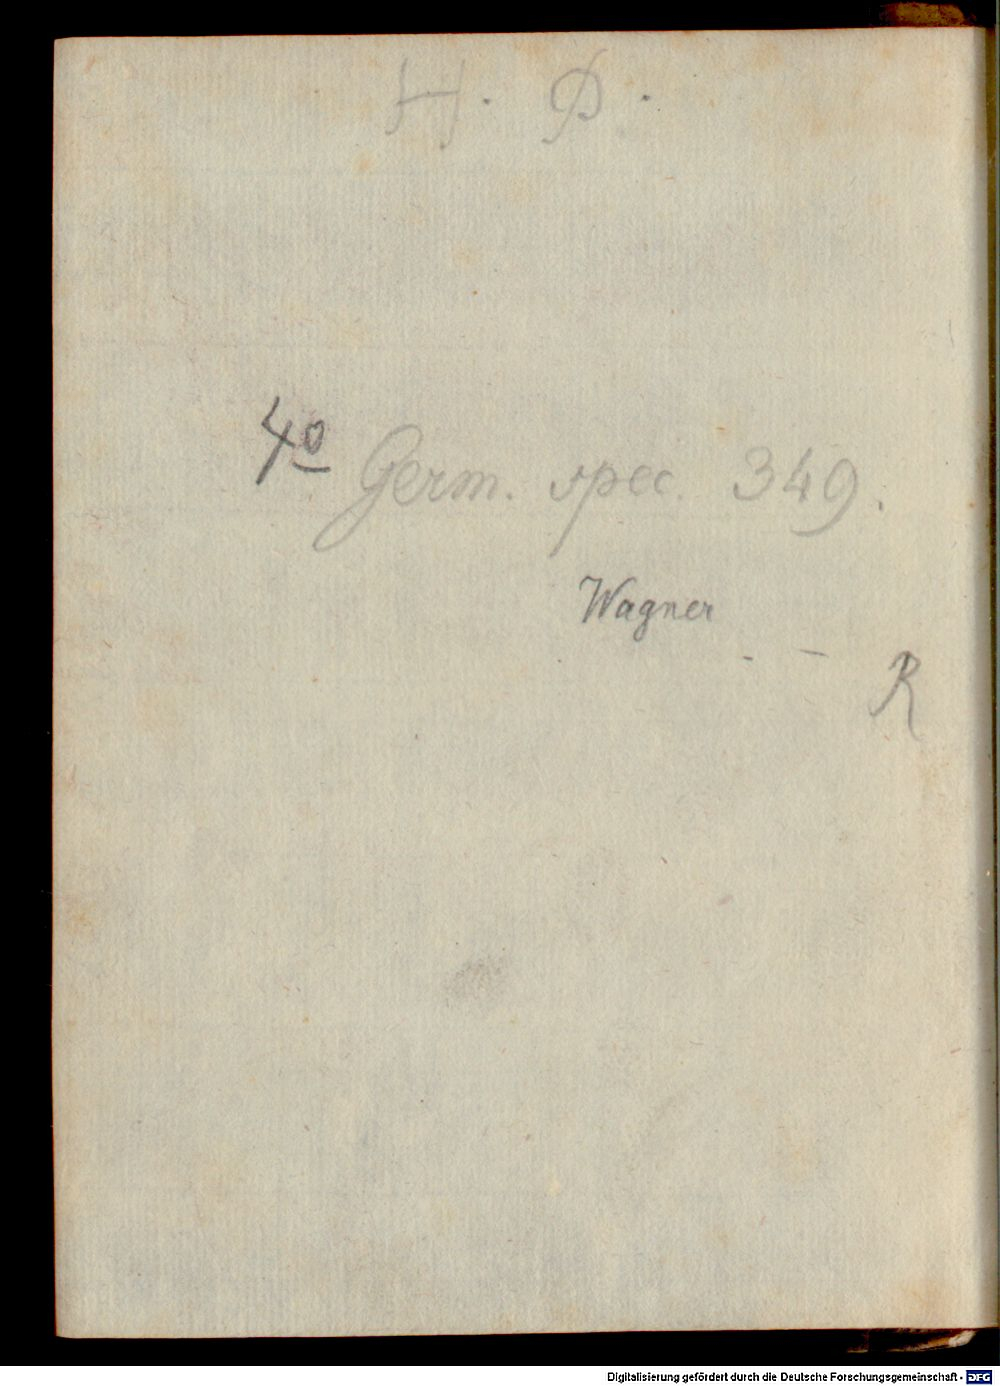 H. D.
4º Germ. spec. 349.
Wagner
R
Digitalisierung gefördert durch die Deutsche Forschungsgemeinschaft - DFG